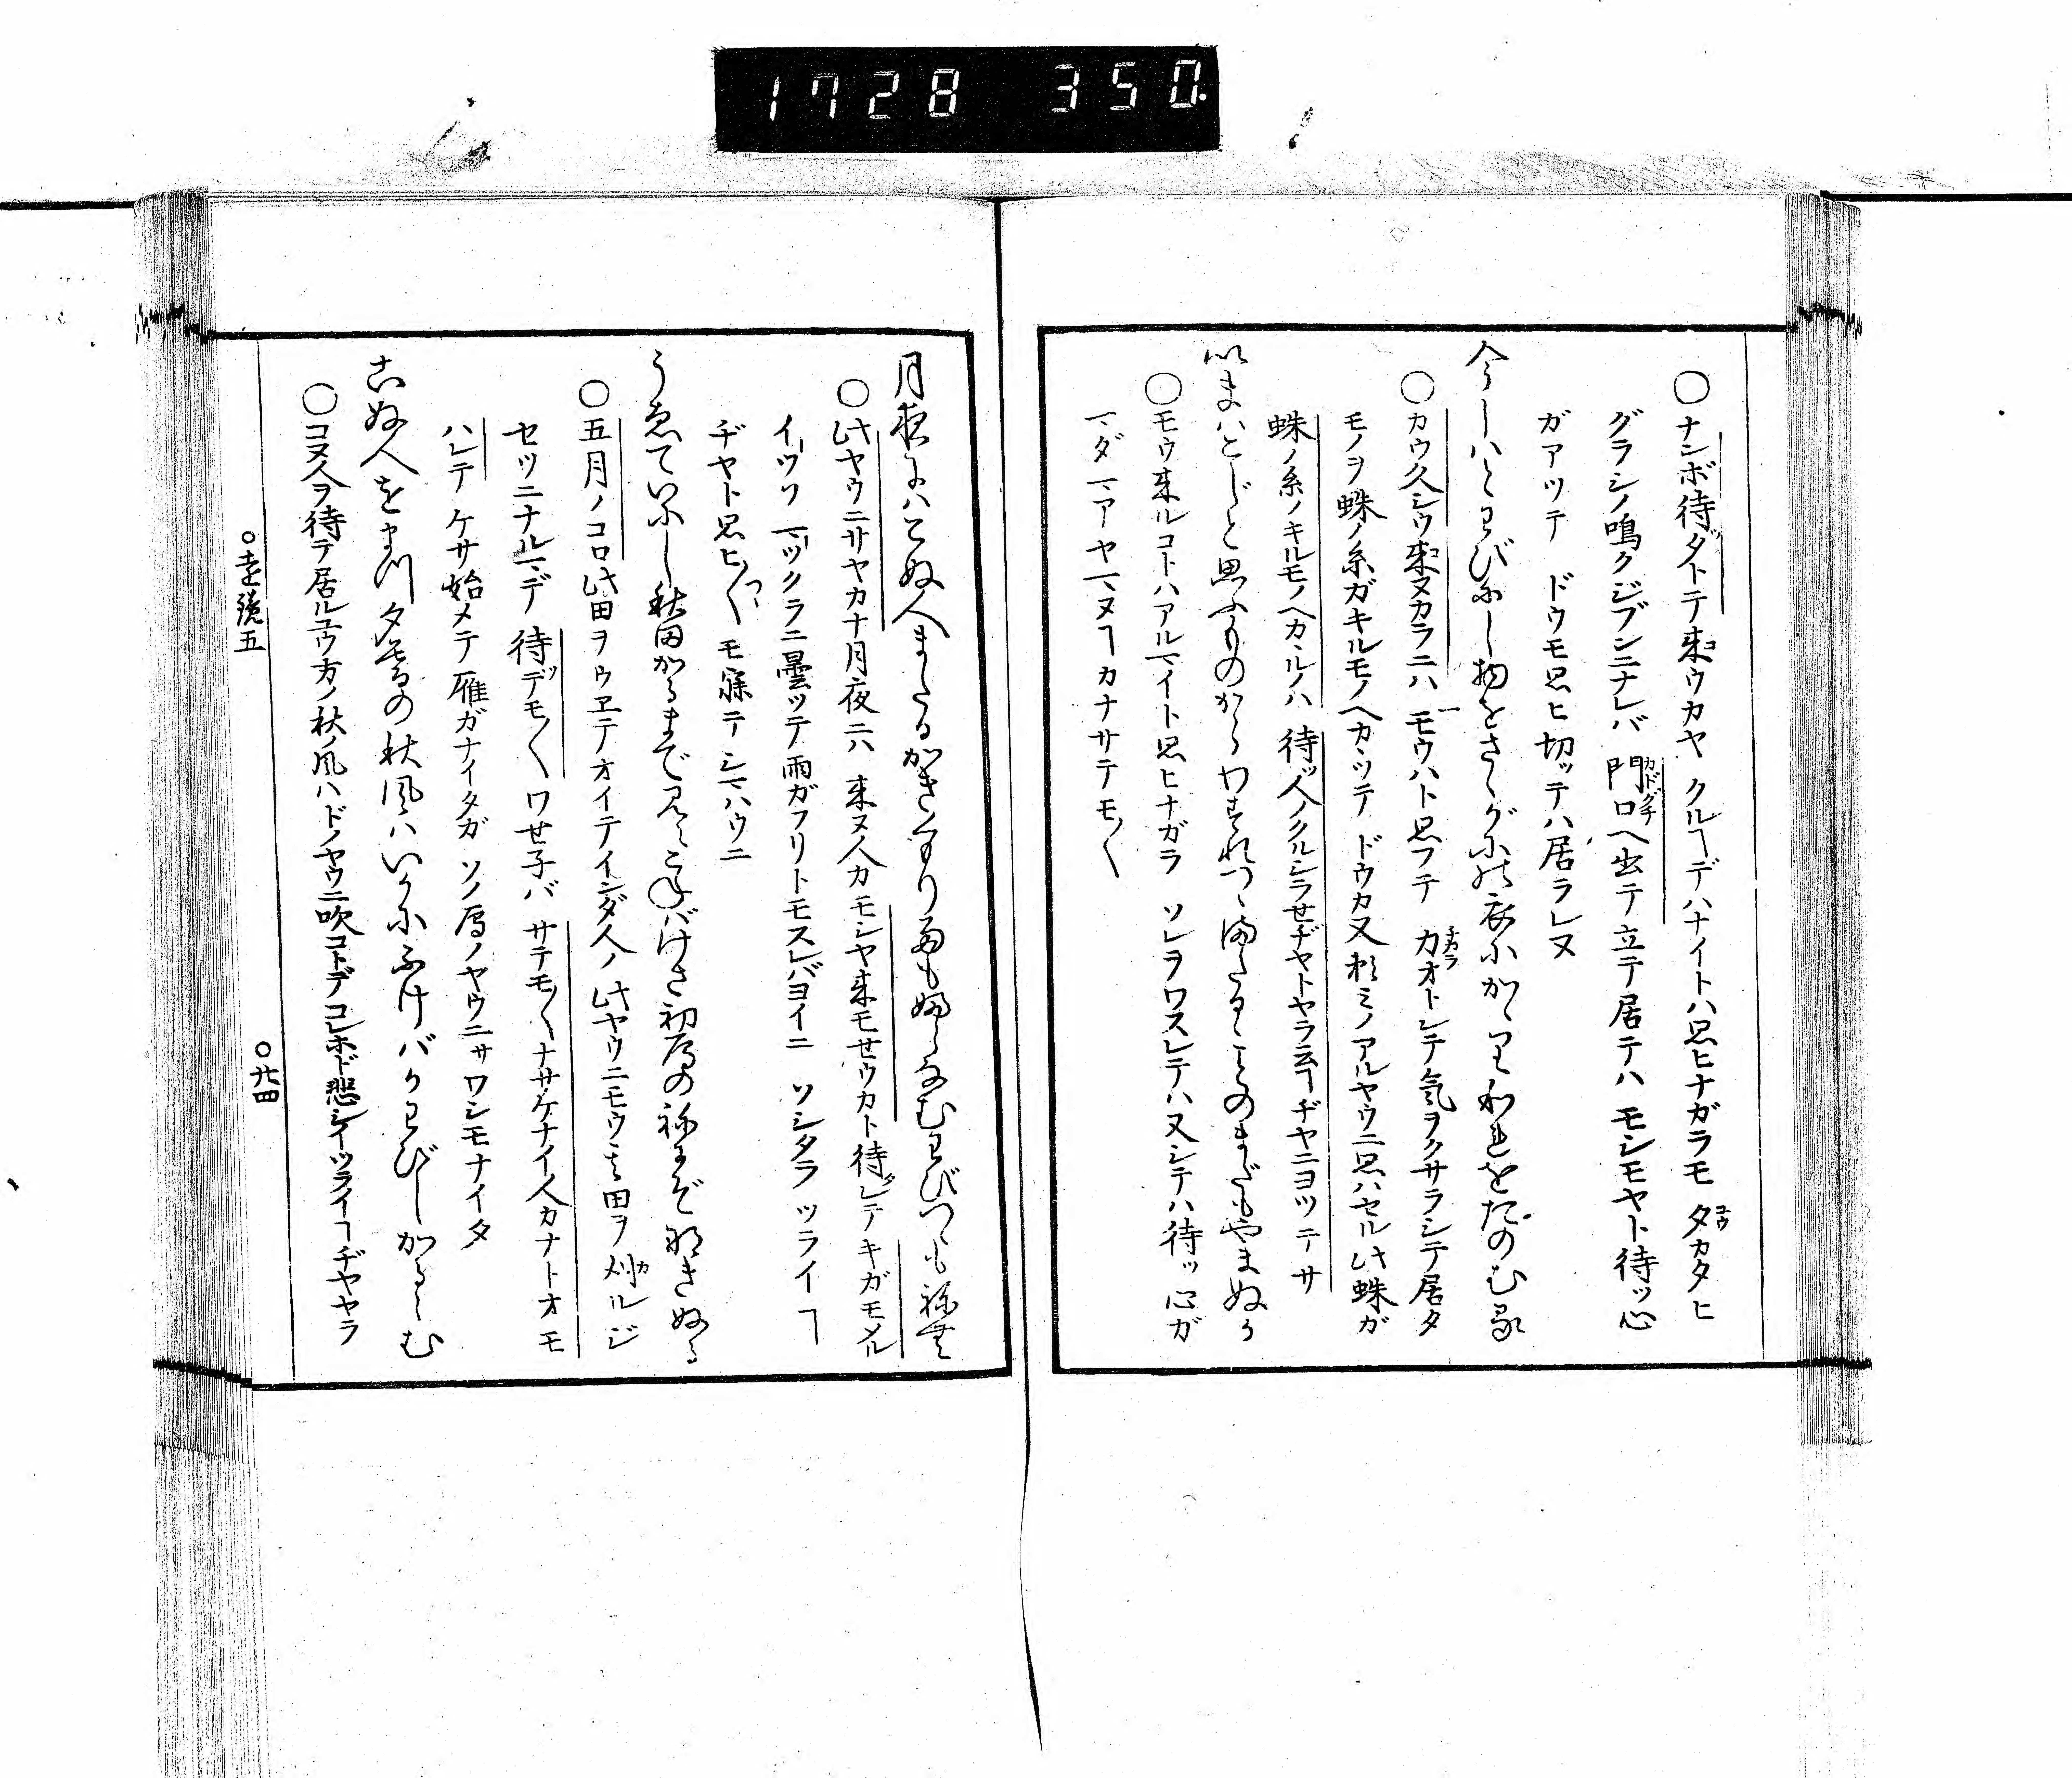 1728 350.
○ナンボ待ダトテ來ウカヤ クルヿデハナイトハ思ヒナガラモ 夕カタヒ
グラシノ鳴クジブンニナレバ 門口ヘ出テ立テ居テハ モシモヤト待ッ心
ガアツテ ドウモ思ヒ切ッテハ居ラレヌ
今しハとわびにし物をさゝがにの衣にかゝりわれをたのむる
○カウ久シウ來ヌカラニハ モウハト思フテ 力オトシテ氣ヲクサラシテ居タ
モノヲ 蛛ノ糸ガキルモノヘカヽツテ ドウカ又頼ミノアルヤウニ思ハセル 此蛛ガ
蛛ノ糸ノキルモノヘカヽルノハ 待ッ人ノクルシラセヂヤトヤラ云ヿヂヤニヨツテサ
いまハこじと思ふものからわすれつゝ待たるゝことのまだもやまぬか
○モウ來ルコトハアルマイト思ヒナガラ ソレヲワスレテハ又シテハ待ッ心ガ
マダマアヤマヌヿカナ サテモ〱
月夜にハこぬ人またるかきくもり雨もふらなむわびつゝもねむ
○此ヤウニサヤカナ月夜ニハ 來ヌ人カモシヤ來モセウカト待レテキガモメル
イツソマツクラニ曇ッテ雨ガフリトモスレバヨイニ ソシタラ ツライヿ
ヂヤト思ヒ〱モ 寐テシマハウニ
うゑていにし秋田かるまで見えこねばけさ初鴈の音にぞなきぬる
○五月ノコロ此田ヲウヱテオイテインダ人ノ 此ヤウニモウ其田ヲ刈ルジ
セツニナルマデ 待デモ〱ワせ子バ サテモ〱ナサケナイ人カナトオモ
ハレテ ケサ始メテ雁ガナイタガ ソノ鴈ノヤウニサ ワシモナイタ
こぬ人をまつ夕暮の秋風ハいかにふけバかわびしかるらむ
○コヌ人ヲ待テ居ルユウ方ノ秋ノ風ハ ドノヤウニ吹コトデ コレホド悲シイツライヿヂヤヤラ
○遠鏡五
○廿四